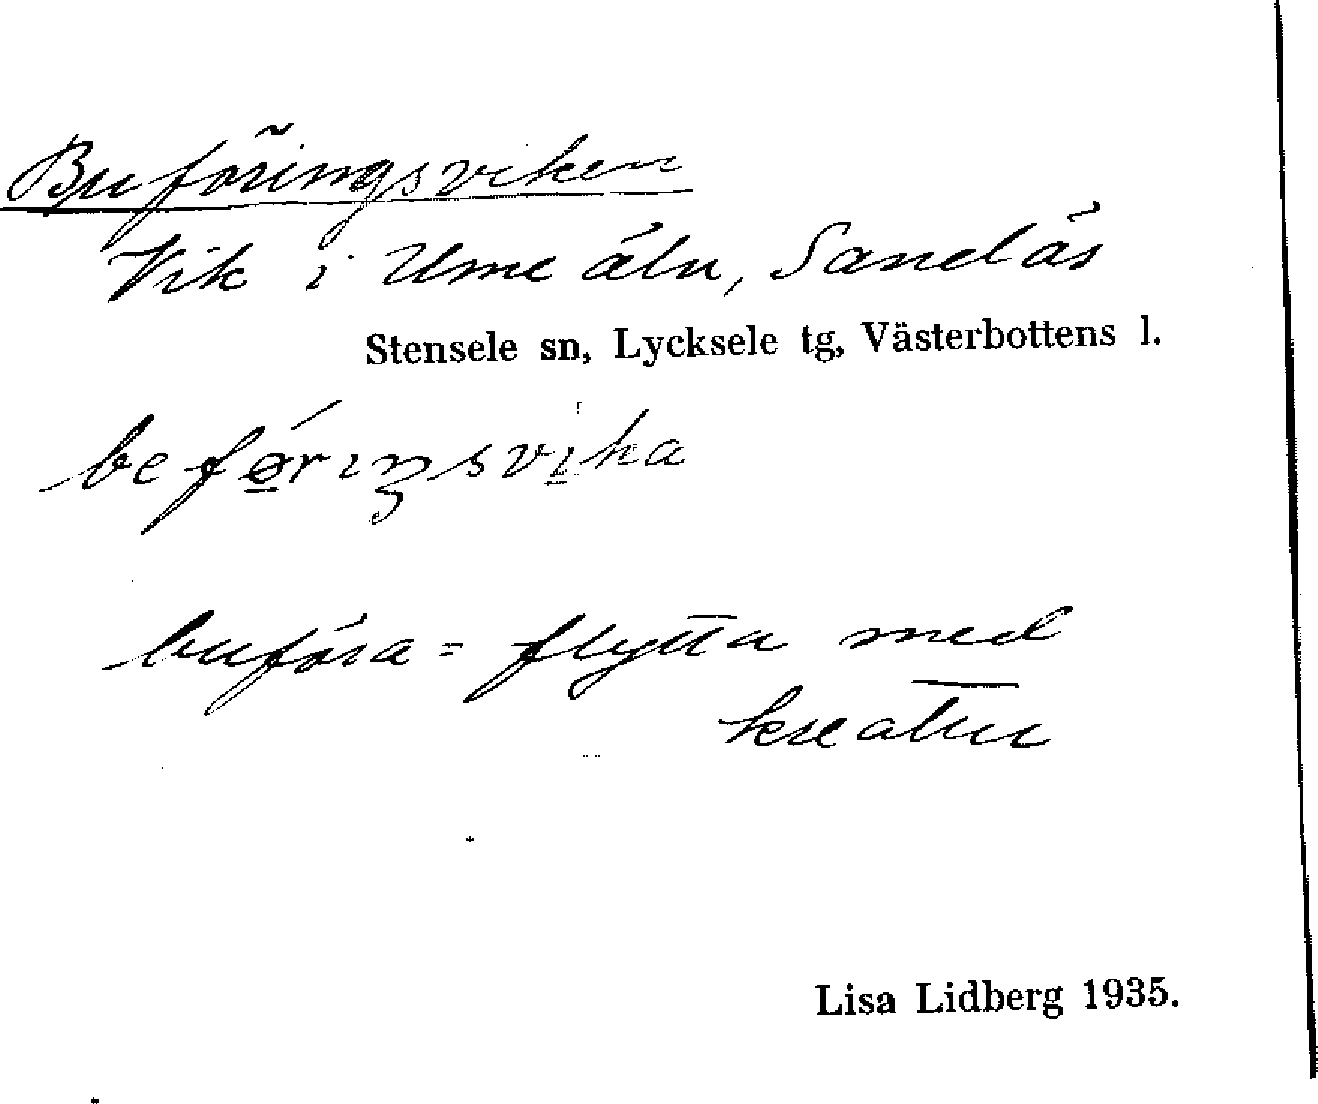 Buföringsviken
Vik i Ume älv, Sandås
Stensele sn, Lycksele tg, Västerbottens l.
beførıŋsvika
buföra = flytta med
kreatur
Lisa Lidberg 1935.